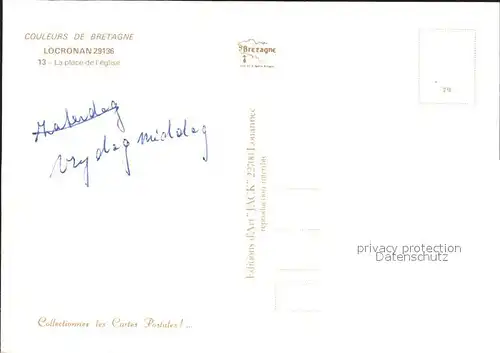 COULEURS DE BRETAGNE
LOCRONAN 29136
13 - La place de l'église
Bretagne
79
Zaterdag
Vrydag middag
Editions d'Art "JACK" 22700 Louannec
reproduction interdite
privacy protection
Datenschutz
Collectionnez les Cartes Postales ! ...